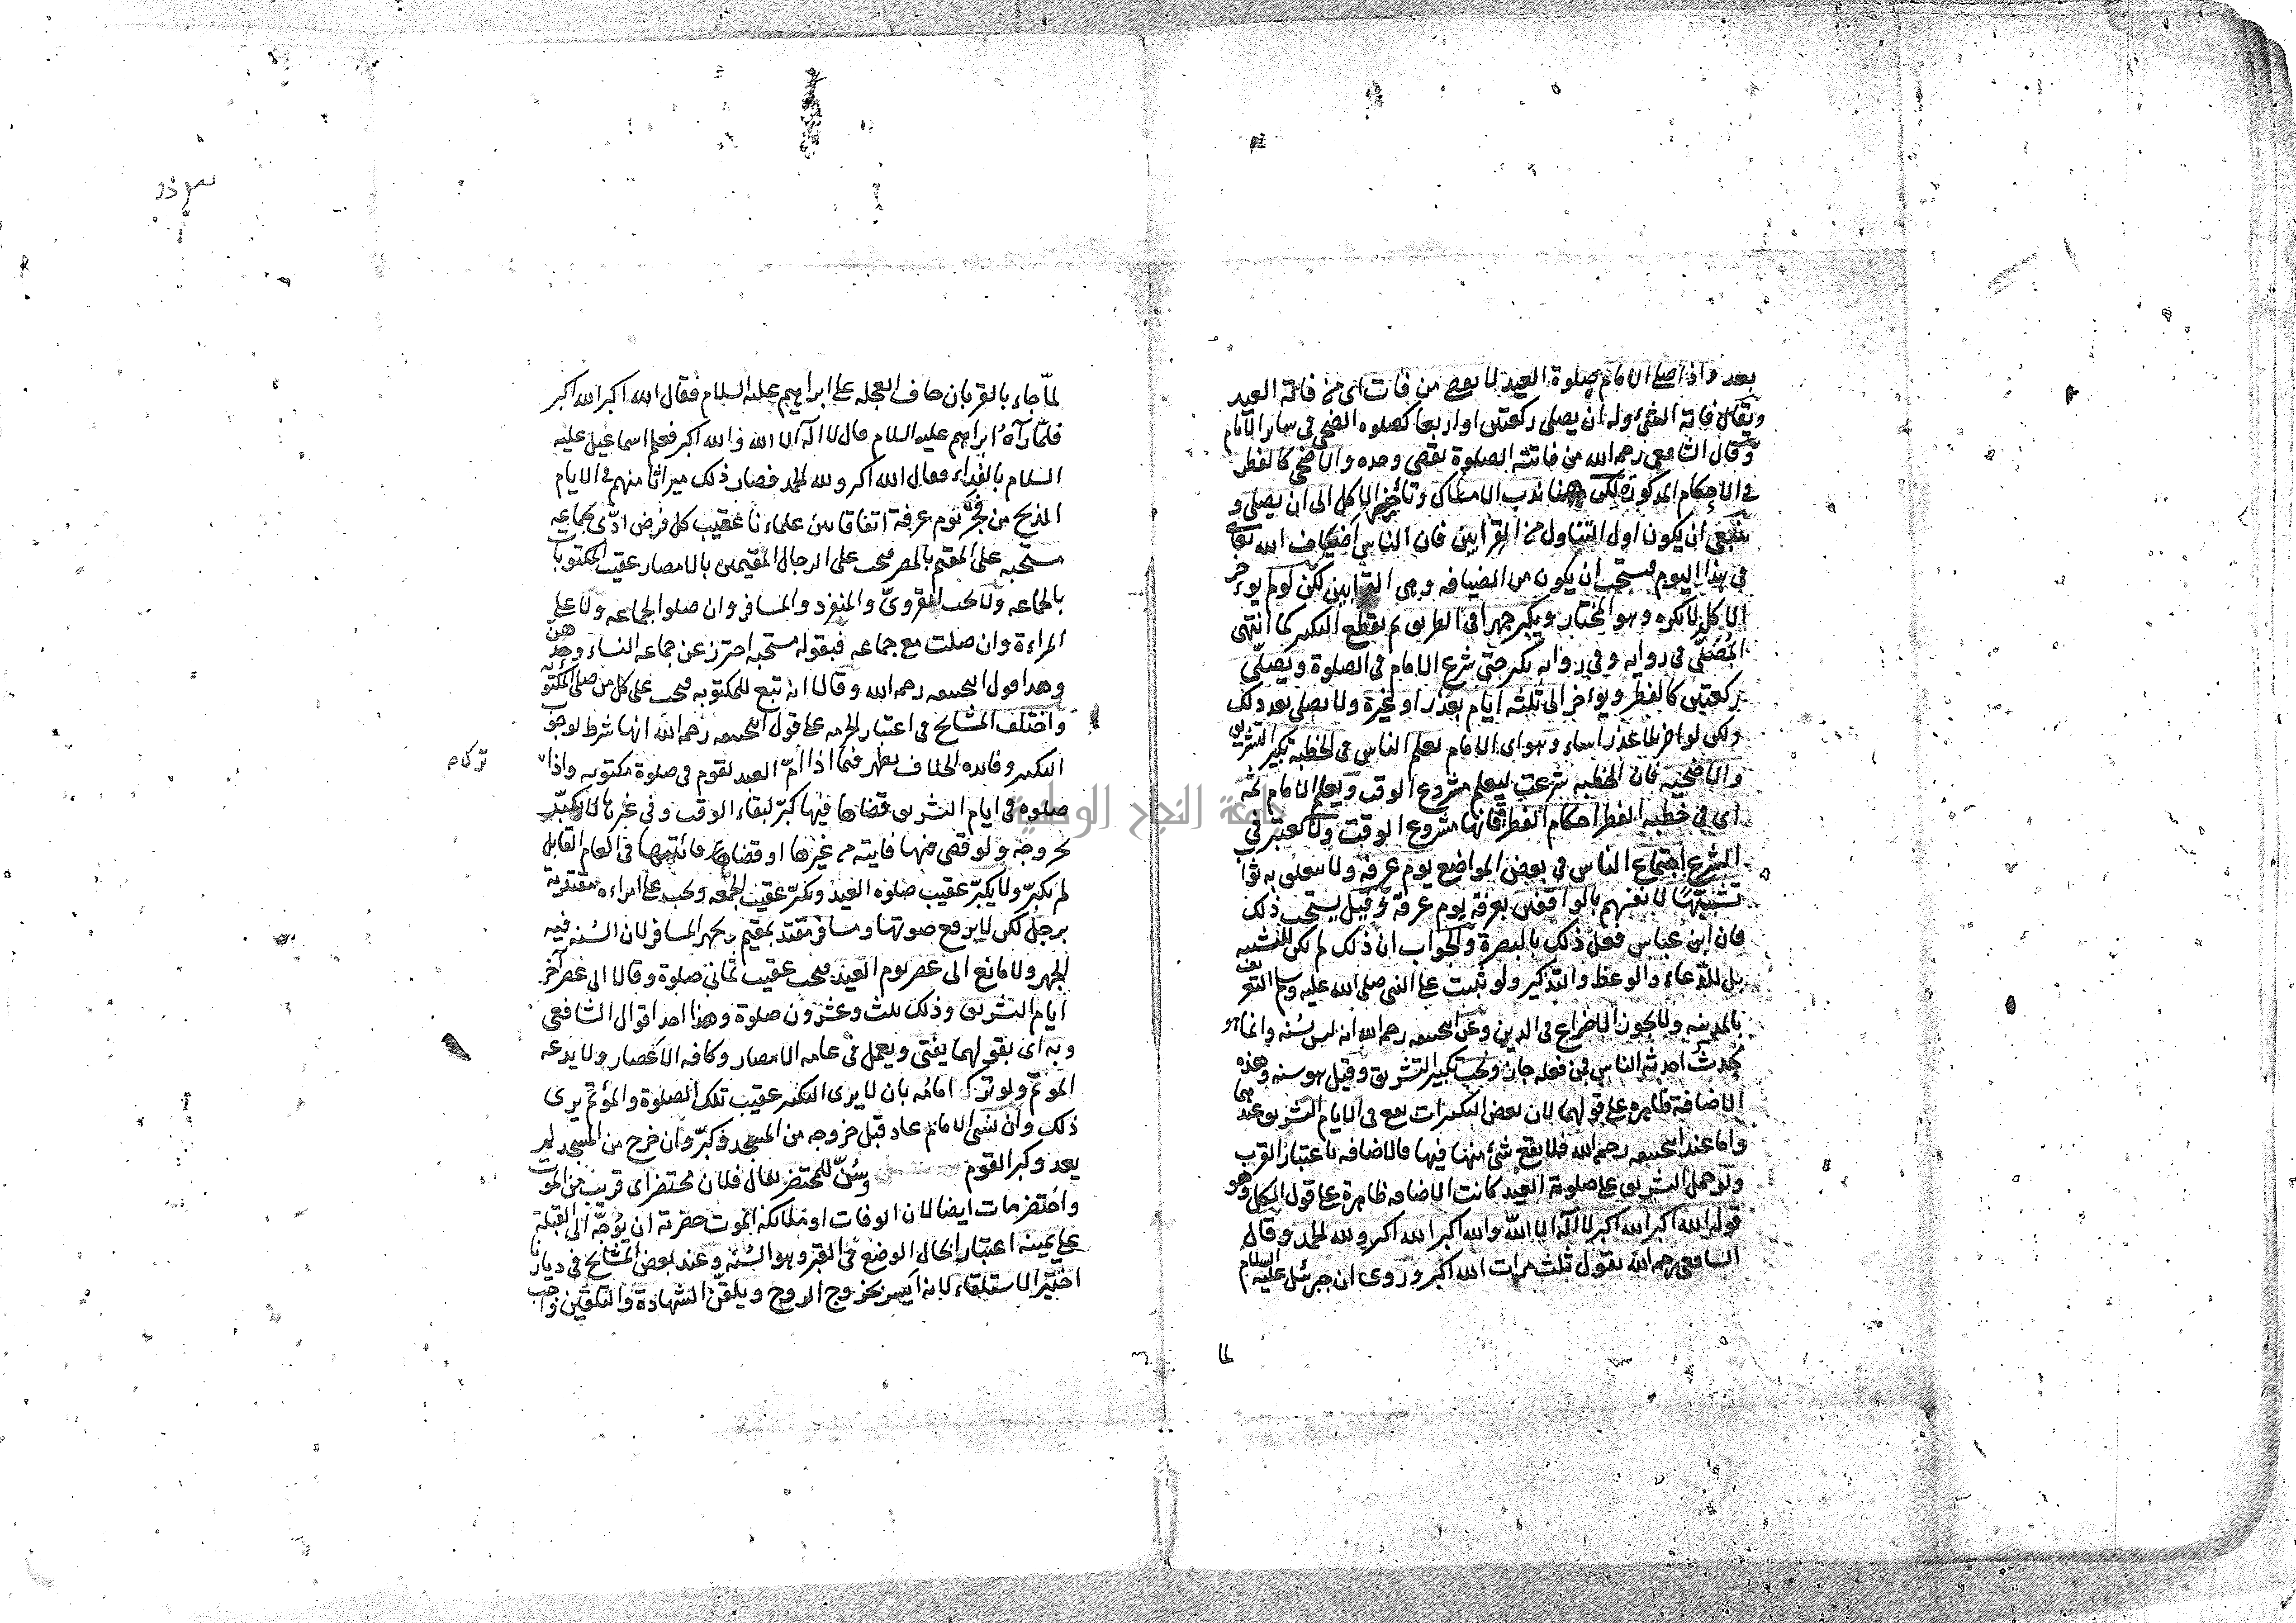 بعد واذا صلى الامام صلوة العيد لا يقضى من فات اى من فاتته العيد
ويقال فاته الشئ وله ان يصلى ركعتين او اربعا كصلوه الضحى فى ساير الايام
وقال الشافعى رحمه الله من فاتته الصلوة يقضى وحده والاضحى كالفطر
فى الاحكام المذكورة لكن هنا ندب الامساك وتأخير الاكل الى ان يصلى و
ينبغى ان يكون اول التناول من القرابين فان الناس اضياف الله تعالى
فى هذا اليوم فيستحب ان يكون من الضيافه وهى القرابين لكن لو لم يوءخر
الاكل لا يكره وهو المختار ويكبر جهرا فى الطريق ثم يقطع التكبير كما انتهى
المصلى فى روايه وفى روايه يكبر حتى شرع الامام فى الصلوة ويصلى
ركعتين كالفطر ويوءخر الى ثلثه ايام بعذر او غيره ولا يصلى بعد ذلك
ولكن لو اخر بلا عذر اساء وهو اى الامام يعلم الناس فى الخطبه تكبير التشريق
والاضحيه فان الخطبه شرعت ليعلم مشروع الوقت ويعلم الامام ثمه
اى فى خطبه الفطر احكام الفطر فانها مشروع الوقت ولا يعتبر فى
الشرع اجتماع الناس فى بعض المواضع يوم عرفه ولا يتعلق به ثواب
تشبيها لانفسهم بالواقفين بعرفه يوم عرفة وقيل يستحب ذلك
فان ابن عباس فعل ذلك بالبصرة والجواب ان ذلك لم يكن للتشبيه
بل للدعاء والوعظ والتذكير ولو ثبت عن النبى صلى الله عليه وسلم التعريف
بالمدينه ولا يجوز الاختراع فى الدين وعن ابى حنيفه رحمه الله انه ليس بسنه وانما هو
حدث احدثه الناس فمن فعله جاز ويجب تكبير التشريق وقيل هو سنه وهذه
الاضافة ظاهره على قولهما لان بعض التكبيرات يقع فى الايام التشريق عندهما
واما عند ابى حنيفه رحمه الله فلا يقع شئ منها فيها فالاضافه باعتبار القرب
ولو حمل التشريق على صلوة العيد كانت الاضافه ظاهرة على قول الكل وهو
قوله الله اكبر الله اكبر لا اله الا الله والله اكبر الله اكبر ولله الحمد وقال
الشافعى رحمه الله يقول ثلث مرات الله اكبر وروى ان جبرئيل عليه السلام
لما
لما جاء بالقربان خاف العجله على ابراهيم عليه السلام فقال الله اكبر الله اكبر
فلما رآه ابراهيم عليه السلام قال لا اله الا الله والله اكبر فعلم اسماعيل عليه
السلام بالفداء فقال الله اكبر ولله الحمد فصار ذلك ميراثا منهم فى الايام
المذبح من فجر يوم عرفة اتفاقا بين علماءنا عقيب كل فرض ادى بجماعه
مستحبه على المقيم بالمصر فيجب على الرجال المقيمين بالامصار عقيب المكتوبات
بالجماعه ولا يجب القروى والمنفرد والمسافر وان صلوا بجماعه ولا على
المراءة وان صلت مع جماعه فبقوله مستحبه احترز عن جماعه النساء وحدهن
وهذا قول ابى حنيفه رحمه الله وقالا انه تبع للمكتوبه فيجب على كل من صلى المكتوبه
واختلف المشايخ فى اعتبار الحريه على قول ابى حنيفه رحمه الله انها شرط لوجوب
التكبير وفايده الخلاف يظهر فيما اذا ام العبد لقوم فى صلوة مكتوبه واذا
ترك
صلوه فى ايام التشريق فقضاها فيها كبر لبقاء الوقت وفى غيرها لا يكبر
لخروجه ولو قضى فيها فايته من غيرها او قضاها فى العام القابل
لم يكبر ولا يكبر عقيب صلوه العيد ويكبر عقيب الجمعه ويجب على امراءه مقتديه
برجل لكن لا يرفع صوتها ومسافر مقتد بمقيم ويجهر المسافر لان السنه فيه
الجهر ولا مانع الى عصر يوم العيد فيجب عقيب ثمانى صلوة وقالا الى عصر آخر
ايام التشريق وذلك ثلث وعشرون صلوة وهذا احد اقوال الشافعى
وبه اى بقولهما يفتى ويعمل فى عامه الامصار وكافه الاعصار ولا يدعه
الموتم ولو ترك امامه بان لا يرى التكبير عقيب تلك الصلوة والموتم يرى
ذلك وان نسى الامام عاد قبل خروجه من المسجد فكبر وان خرج من المسجد لم
يعد وكبر القوم وسن للمحتضر يقال فلان محتضر اى قريب من الموت
واحتضر مات ايضا لان الوفات او ملائكه الموت حضرته ان يوجه الى القبلة
على يمينه اعتبارا لحال الوضع فى القبر وهو السنه وعند بعض المشايخ فى ديارنا
اختير الاستلقاء لانه ايسر بخروج الروح ويلقن الشهادة والتلقين واجب
جامعة النجاح الوطنية